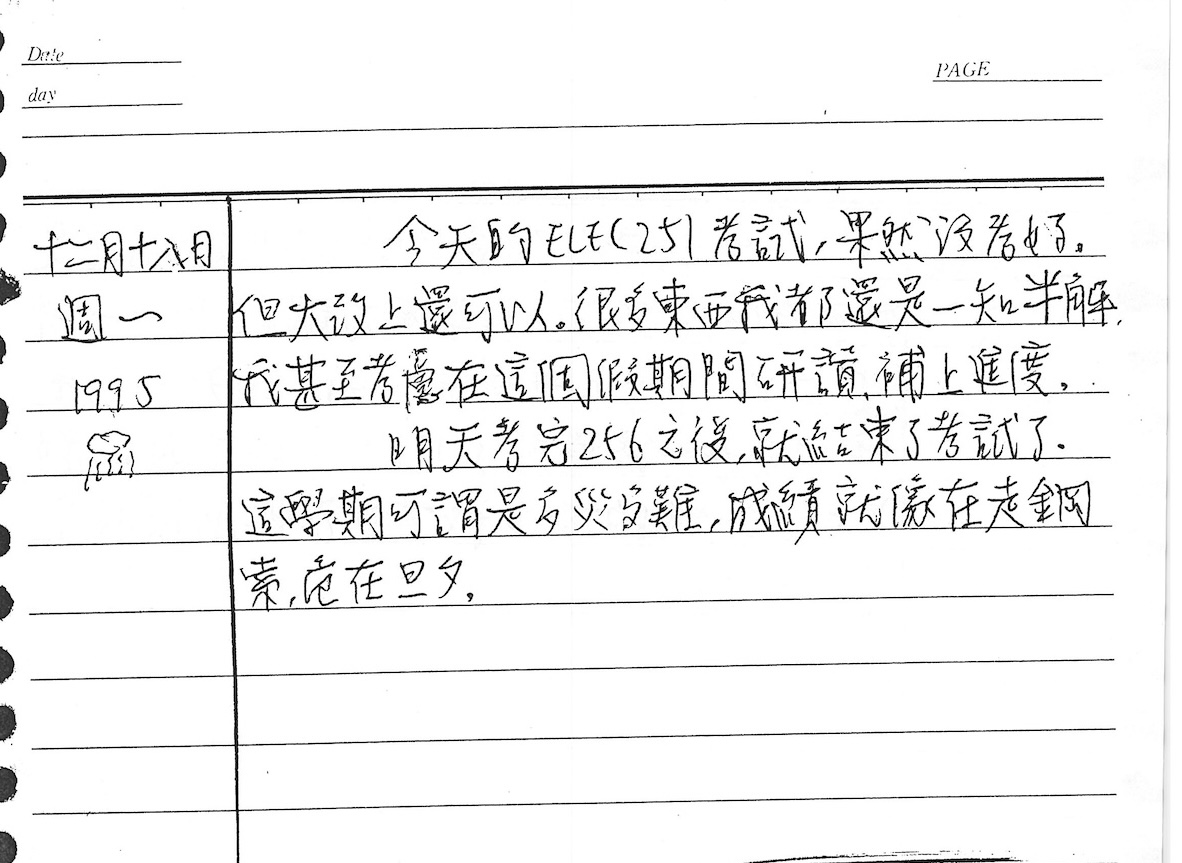 Date
day
PAGE
十二月十八月
週一
1995
今天的ELEC251考試,果然沒考好。
但大致上還可以。很多東西我都還是一知半解,
我甚至考慮在這個假期間研讀,補上進度。
明天考完256之後,就結束了考試了.
這學期可謂是多災多難,成績就像在走鋼
索,危在旦夕。